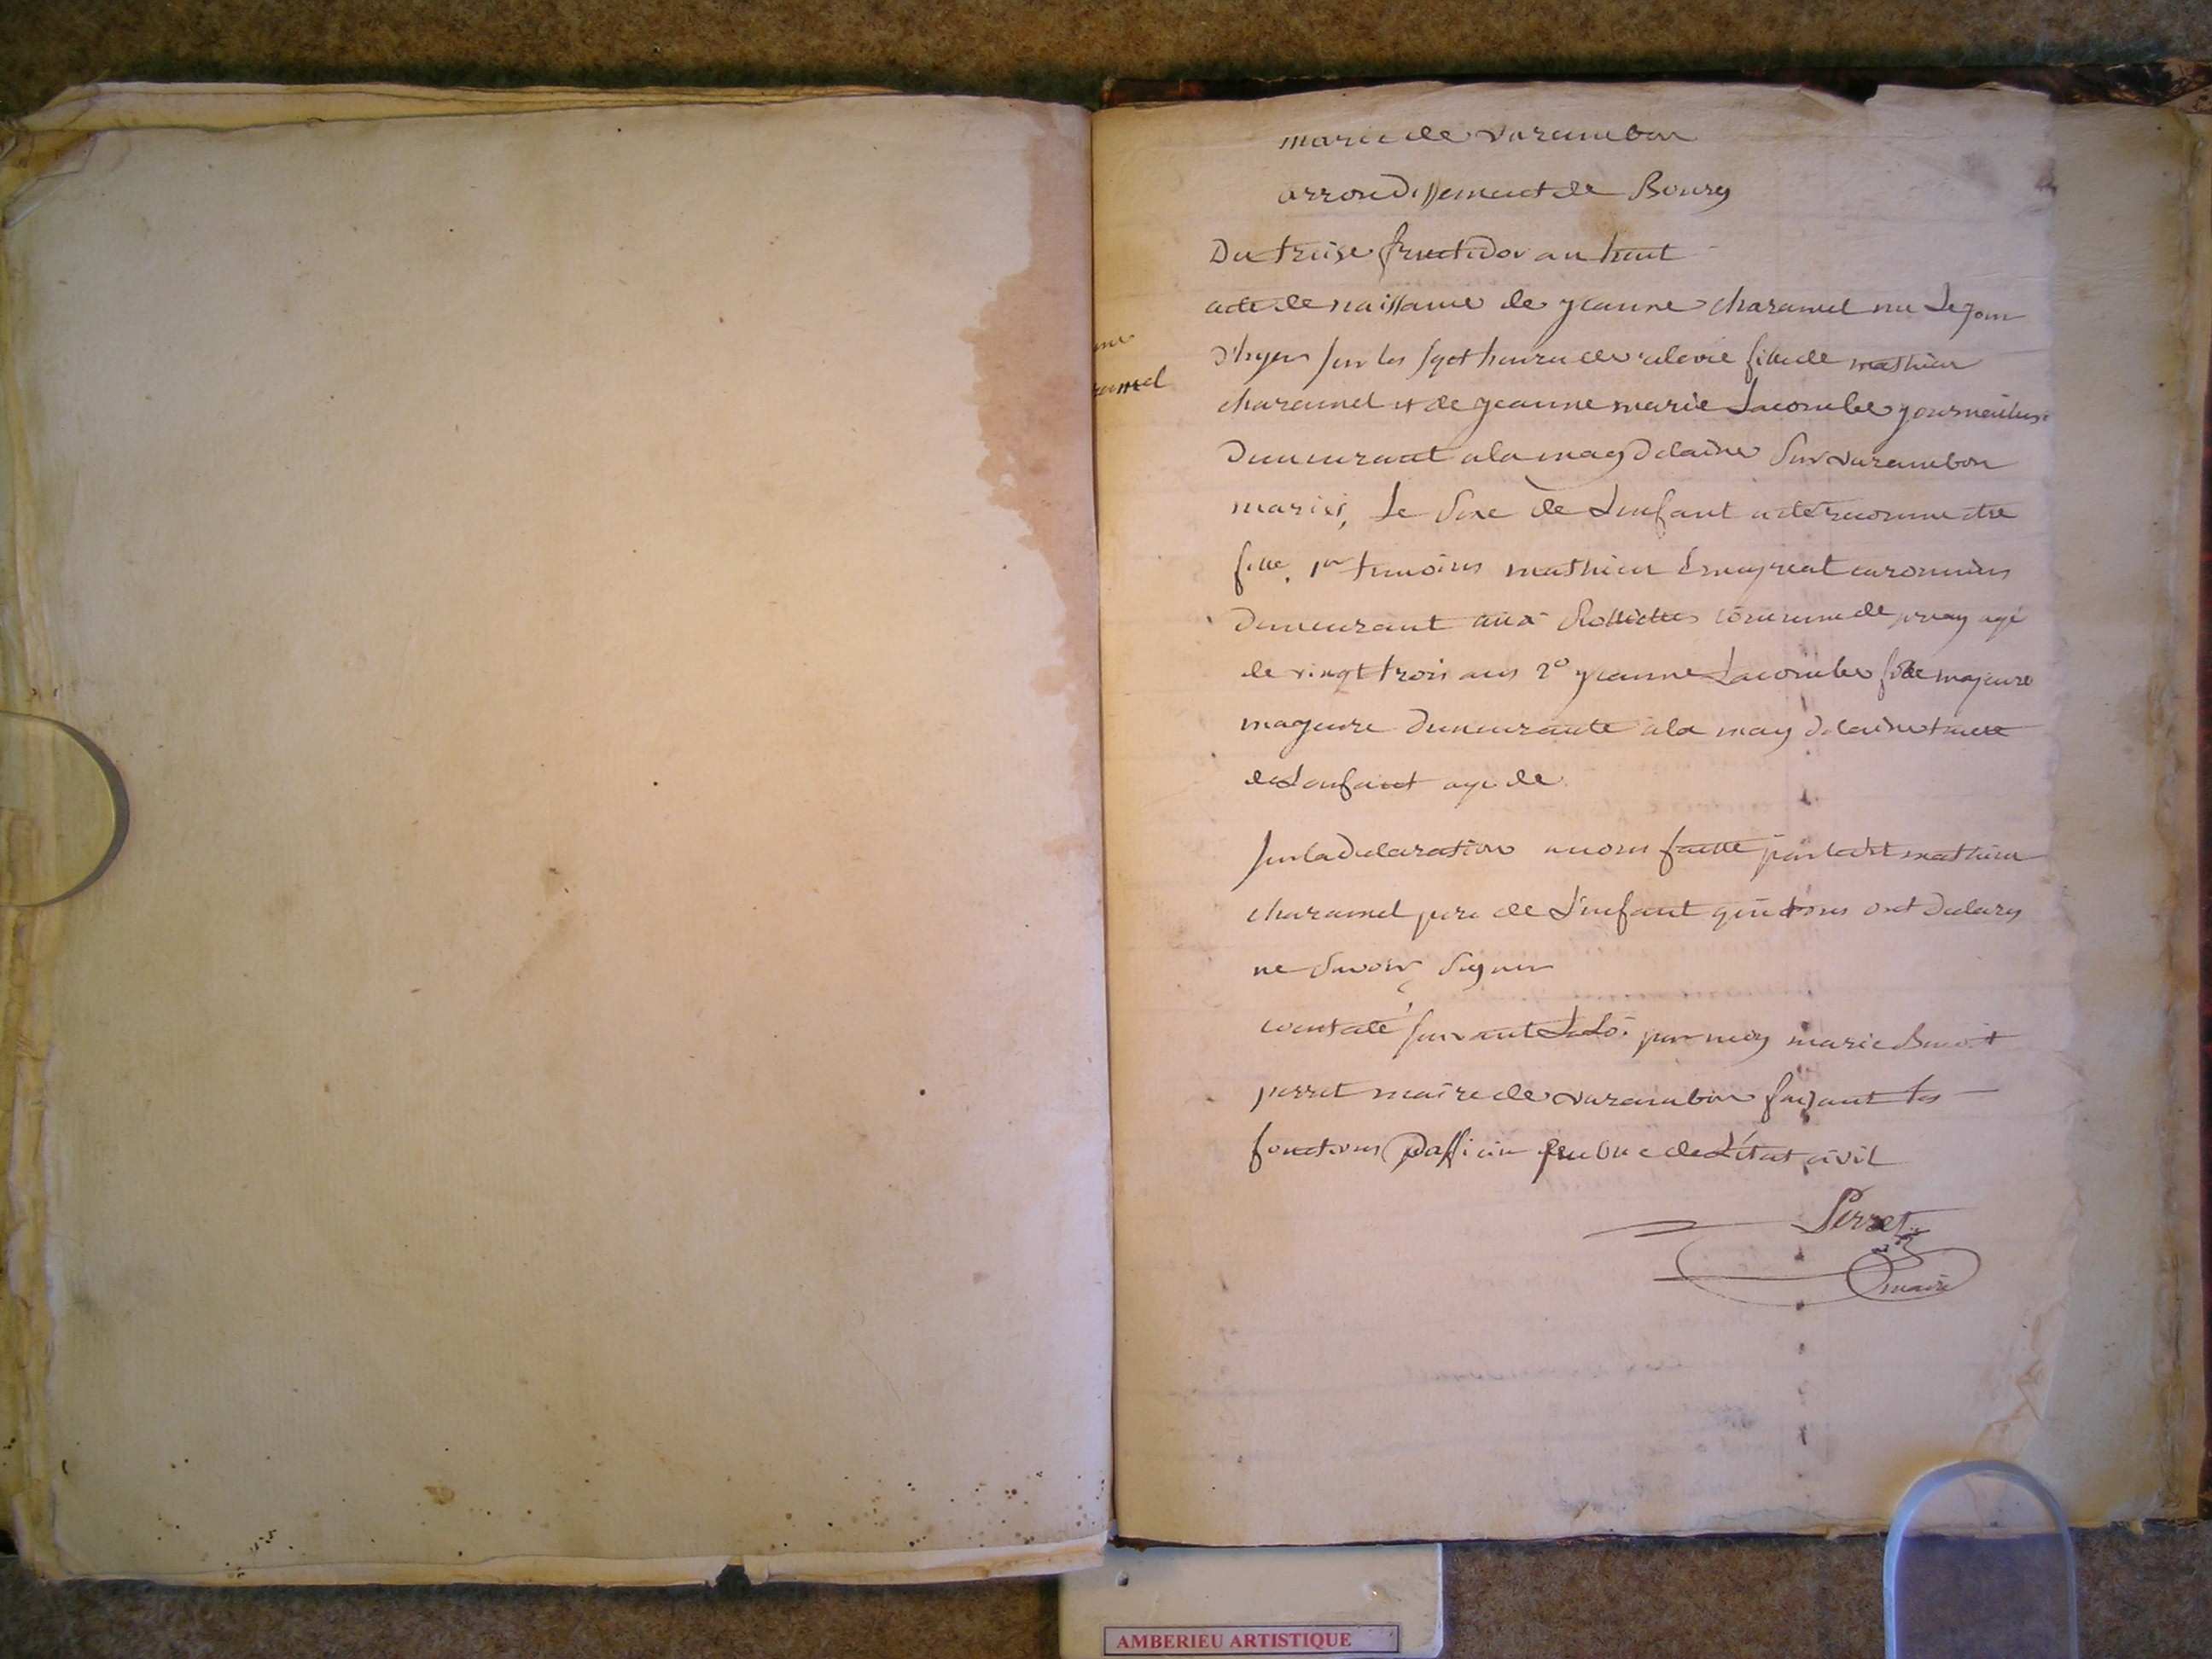 marie de varambon
arrondissement de Bourg
Du treise fructidor an huit
acte de naissance de jeanne charamel nee Le jour
d'hyer sur les sept heures de relevé fille de mathieu
charamel et de jeanne marie Lacombe journailiers
demeurant a la magdelaine sur varambon
mariés, Le sexe de Lenfant a eté reconnu etre
fille, 1er temoins mathieu
demeurant aux commune de priay agé
de vingt trois ans 2º jeanne Lacombe fille majeure
majeure demeurante a la magdelaine tante
de Lenfant agé de
sur la declaration a nous faitte par ledit mathieu
charamel pere de L'enfant qui tous ont declaré
ne savoir signer
constaté suivant La Loi par moy marie Benoit
perret maire de varambon faisant les
fonctions d'officier public de L'état civil
Perret
maire
ramel
AMBERIEU ARTISTIQUE